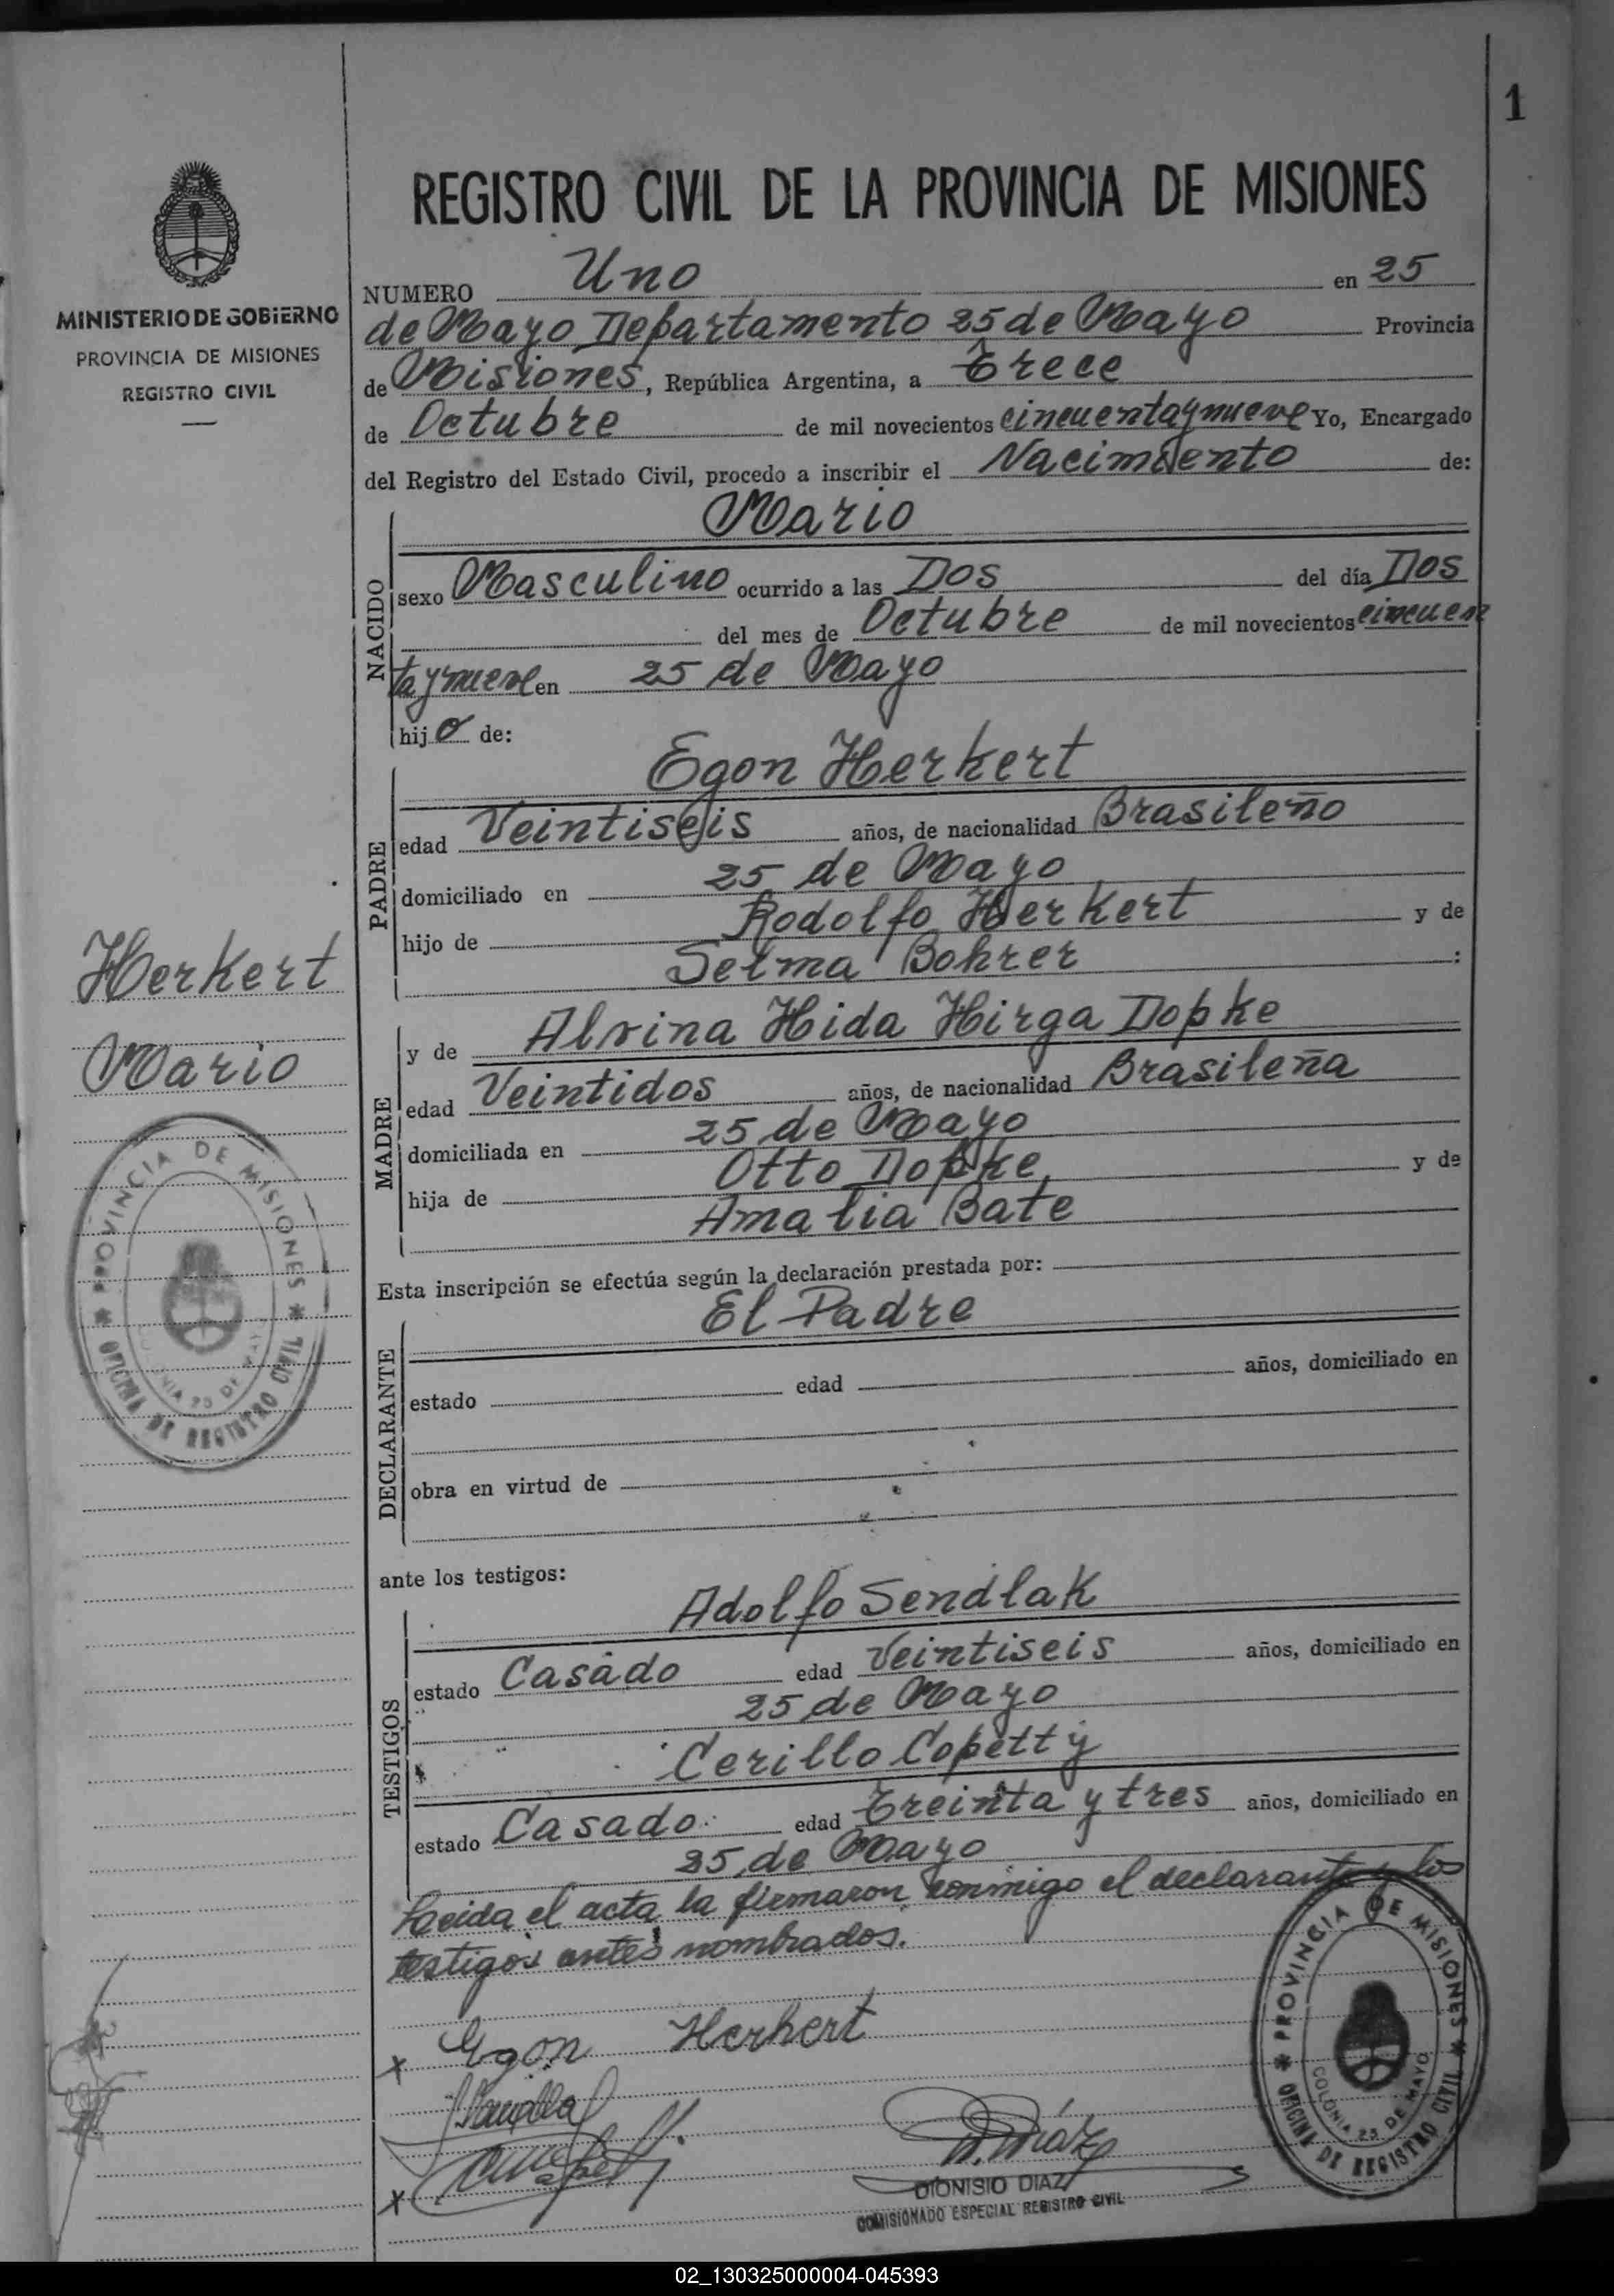 1
REGISTRO CIVIL DE LA PROVINCIA DE MISIONES
MINISTERIO DE GOBIERNO
PROVINCIA DE MISIONES
REGISTRO CIVIL
NUMERO Uno en 25
de Mayo Departamento 25 de Mayo Provincia
de Misiones, República Argentina, a Trece
de Octubre de mil novecientos cincuentaynueve Yo, Encargado
del Registro del Estado Civil, procedo a inscribir el Nacimiento de:
NACIDO
Mario
sexo Masculino ocurrido a las Dos del día Dos
del mes de Octubre de mil novecientos cincuen
taynueve en 25 de Mayo
hijo de:
PADRE
Egon Herkert
edad Veintiseis años, de nacionalidad Brasileño
domiciliado en 25 de Mayo
hijo de Rodolfo Herkert y de
Selma Bohrer :
Herkert
Mario
MADRE
y de Alvina Hida Hirga Dopke
edad Veintidos años, de nacionalidad Brasileña
domiciliada en 25 de Mayo
hija de Otto Dopke y de
Amalia Bate
PROVINCIA DE MISIONES
COLONIA 25 DE MAYO
OFICINA DE REGISTRO CIVIL
Esta inscripción se efectúa según la declaración prestada por:
DECLARANTE
El Padre
estado edad años, domiciliado en
obra en virtud de
ante los testigos:
TESTIGOS
Adolfo Sendlak
estado Casado edad Veintiseis años, domiciliado en
25 de Mayo
Cerillo Copetty
estado Casado edad Treinta y tres años, domiciliado en
25 de Mayo
Leida el acta la firmaron conmigo el declarante y los
testigos antes nombrados.
x Egon Herkert
x
D. Díaz
DIONISIO DIAZ
COMISIONADO ESPECIAL REGISTRO CIVIL
PROVINCIA DE MISIONES
COLONIA 25 DE MAYO
OFICINA DE REGISTRO CIVIL
02_130325000004-045393